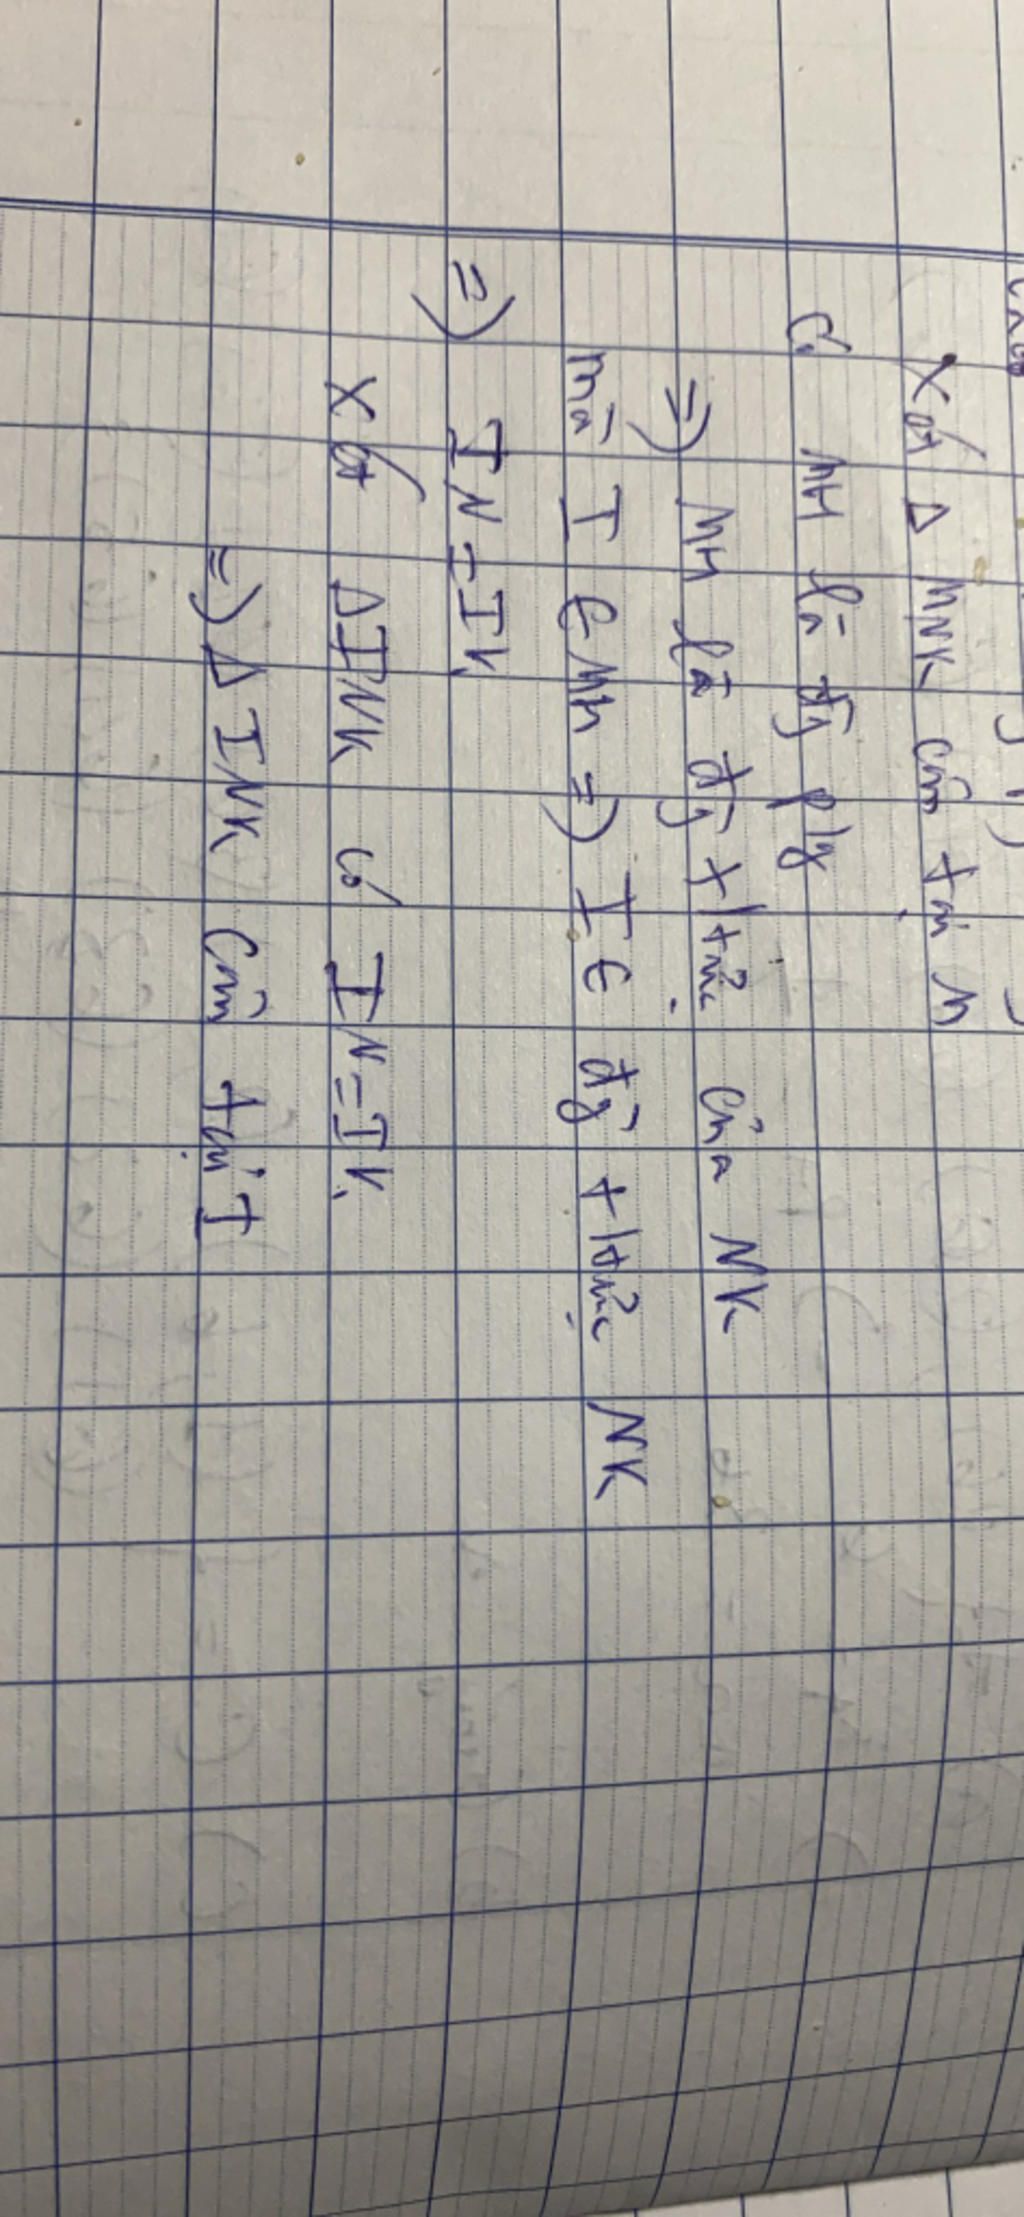 Xét Δ MNK cân tại M
Có MH là đg p/g
=) MH là đg t/trực của NK
mà I ∈ MH =) I ∈ đg t/trực NK
=) IN = IK
Xét ΔINK có IN = IK
=) Δ INK cân tại I